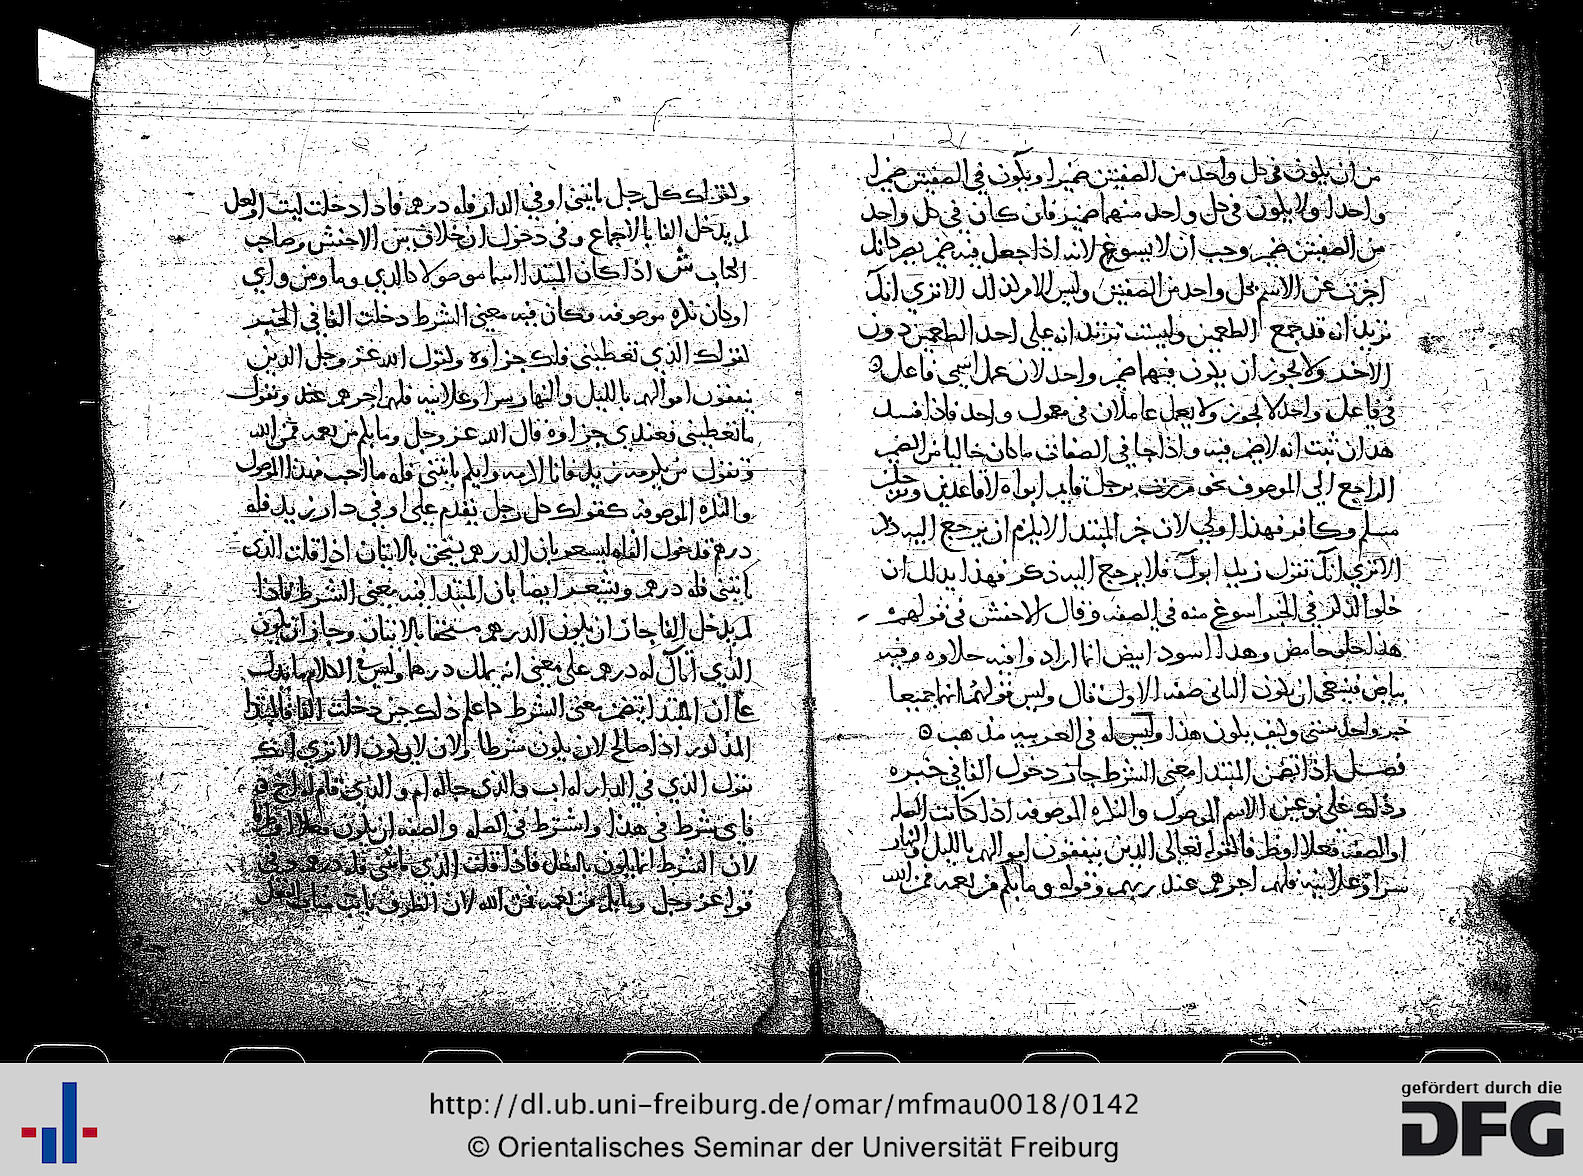 من ان يكون في كل واحد من الصفتين ضميرا ويكون في الصفتين ضميرا
واحدا ولا يكون في كل واحد منهما ضمير فان كان في كل واحد
من الصفتين ضمير وجب ان لا يسوغ لانه اذا جعل فيه ضمير
اخبرت عن الاسم بكل واحد من الصفتين وليس الامر كذلك الا ترى انك
تريد انه قد جمع الطعمين ولست تريد انه على احد الطعمين دون
الاخر ولا يجوز ان يكون فيهما ضمير واحد لان عمل اسمي فاعل
في فاعل واحد لا يجوز ولا يعمل عاملان في معمول واحد فاذا فسد
هذان ثبت انه لا ضمير فيه واذا جا في الصفات ما كان خاليا من الضمير
الراجع الى الموصوف نحو مررت برجل قايم ابواه لا قاعدين وبرجلين
مسلم وكافر فهذا اولى لان خبر المبتدا لا يلزم ان يرجع اليه ذكر
الا ترى انك تقول زيد ابوك فلا يرجع اليه ذكر فهذا يدلك ان
خلو الذكر في الخبر اسوغ منه في الصفه وقال الاخفش في قولهم
هذا حلو حامض وهذا اسود ابيض انما اراد وا فيه حلاوه وفيه
بياض فينبغي ان يكون الثاني صفه للاول قال وليس قولهم انهما جميعا
خبر واحد بشي وكيف يكون هذا وليس له في العربيه مذهب
فصل اذا تضمن المبتدا معنى الشرط جاز دخول الفا في خبره
وذلك على نوعين الاسم الموصول والنكره الموصوفه اذا كانت الصله
او الصفه فعلا او ظرفا كقوله تعالى الذين ينفقون اموالهم بالليل والنهار
سرا وعلانيه فلهم اجرهم عند ربهم وقوله وما بكم من نعمه فمن الله
ولقولك كل رجل ياتيني او في الدار فله درهم فاذا دخلت ليت او لعل
لم يدخل الفا بالاجماع وفي دخول ان خلاف بين الاخفش وصاحب
الكتاب ش اذا كان المبتدا اسما موصولا كالذي وما ومن واي
او كان نكره موصوفه وكان فيه معنى الشرط دخلت الفا في الخبر
كقولك الذي تعطيني فلك جزاوه وكقول الله عز وجل الذين
ينفقون اموالهم بالليل والنهار سرا وعلانيه فلهم اجرهم عند وتقول
ما تعطيني فعندي جزاوه قال الله عز وجل وما بكم من نعمه فمن الله
وتقول من يكرمه زيد فانا اكرمه وايكم ياتيني فله ما احب فهذا الموصول
والنكره الموصوفه كقولك كل رجل يقدم علي او في دار زيد فله
درهم فدخول الفا ليشعر بان الدرهم يستحق بالاتيان اذا قلت الذي
ياتيني فله درهم ويشعر ايضا بان المبتدا فيه معنى الشرط فاذا
لم يدخل الفا جاز ان يكون الدرهم مستحقا بالاتيان وجاز ان يكون
الذي اتاك له درهم على معنى انه يملك درهما وليس في الكلام ما يدل
على ان المبتدا يتضمن معنى الشرط واعلم ذلك حين دخلت الفا فالمبتدا
المذكور اذا صالح لان يكون شرطا ولان لا يكون الا ترى انك
تقول الذي في الدار له اب والذي جا له ام والذي قام له اخ
فاي شرط في هذا واشترط في الصله والصفه ان يكون فعلا او ظرفا
لان الشرط انما يكون بالفعل فاذا قلت الذي ياتيني فله درهم
قوله عز وجل وما بكم من نعمه فمن الله لان الظرف نايب مناب الفعل
http://dl.ub.uni-freiburg.de/omar/mfmau0018/0142
© Orientalisches Seminar der Universität Freiburg
gefördert durch die
DFG